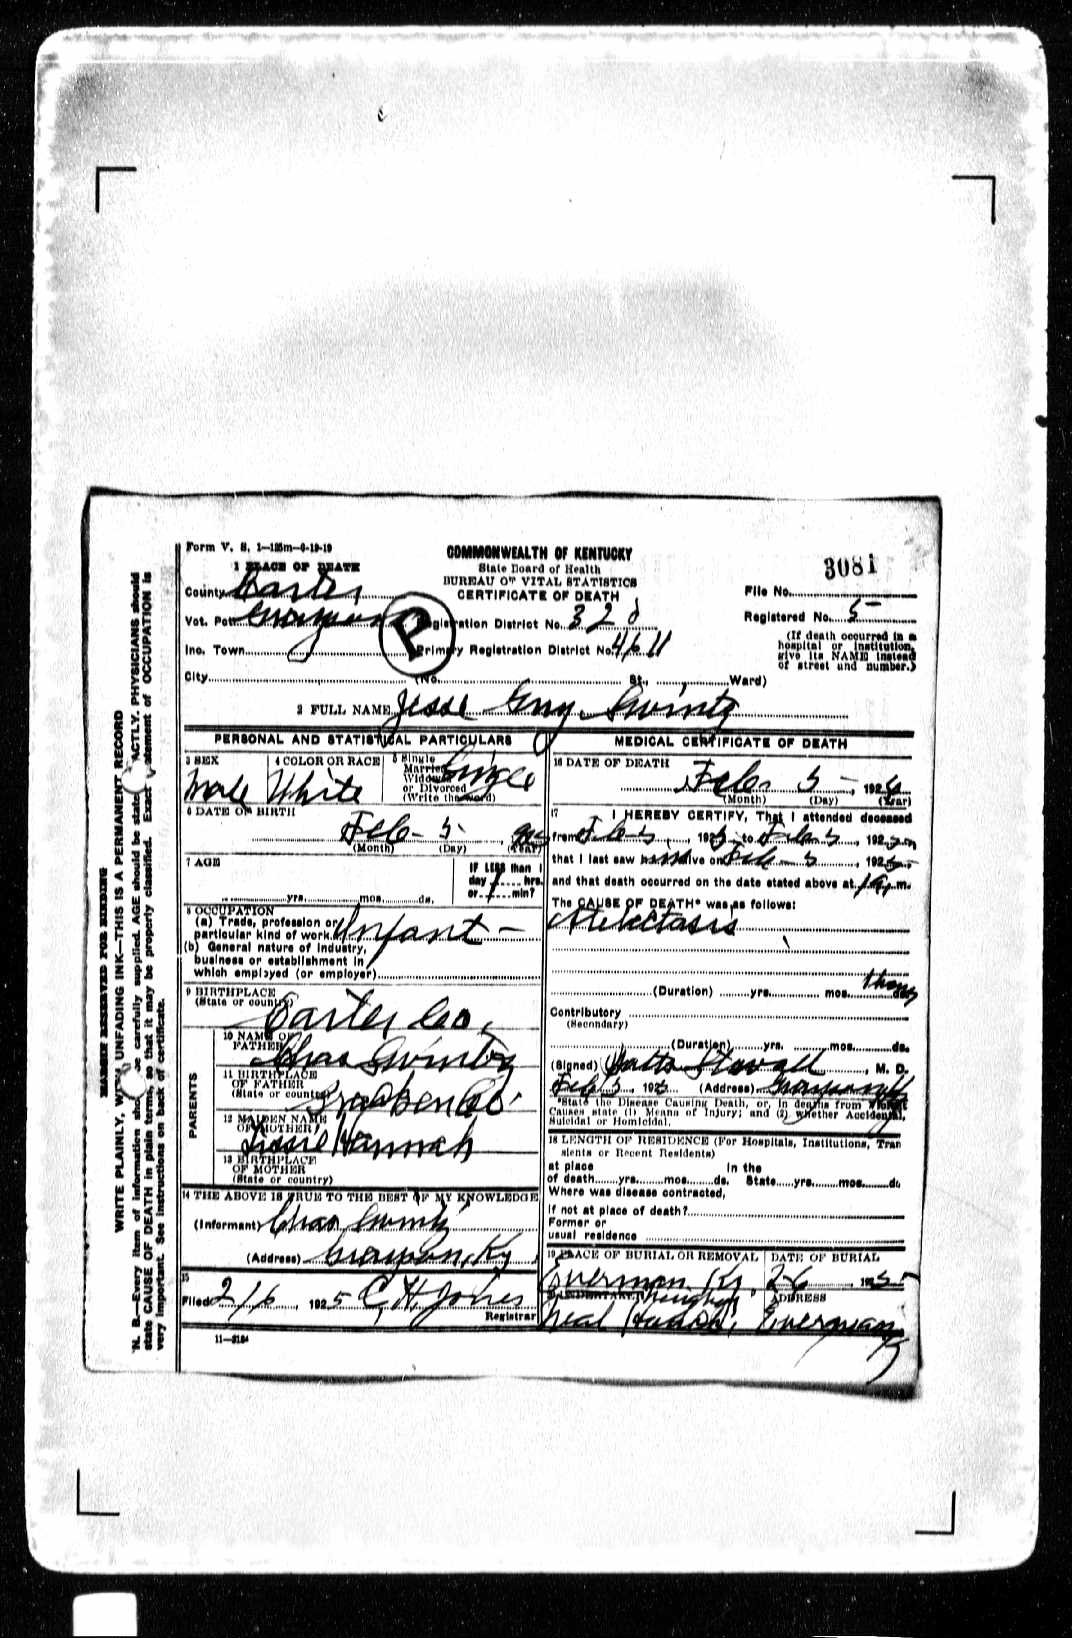 Form V. S. 1—125m—6-19-19
COMMONWEALTH OF KENTUCKY
State Board of Health
BUREAU OF VITAL STATISTICS
CERTIFICATE OF DEATH
3081
1 PLACE OF DEATH
County Carter
Vot. Pct. Grayson
Inc. Town
City
P
Registration District No. 328
Primary Registration District No. 4611
(No. St., Ward)
File No.
Registered No. 5
(If death occurred in a
hospital or institution,
give its NAME instead
of street and number.)
2 FULL NAME Jesse Swintz
PERSONAL AND STATISTICAL PARTICULARS
3 SEX
Male
4 COLOR OR RACE
White
5 Single
Married
Widowed
or Divorced
(Write the word)
Single
6 DATE OF BIRTH
Feb- 5-
(Month) (Day) (Year)
7 AGE
yrs. mos. ds.
IF LESS than 1
day 1 hrs.
or min?
8 OCCUPATION
(a) Trade, profession or
particular kind of work Infant -
(b) General nature of industry,
business or establishment in
which employed (or employer)
9 BIRTHPLACE
(State or country)
Carter Co,
PARENTS
10 NAME OF
FATHER
Chas Swintz
11 BIRTHPLACE
OF FATHER
(State or country)
12 MAIDEN NAME
OF MOTHER
Hannah
13 BIRTHPLACE
OF MOTHER
(State or country)
14 THE ABOVE IS TRUE TO THE BEST OF MY KNOWLEDGE
(Informant) Chas Swintz
(Address) Grayson, Ky
15
Filed 2/6, 1925 C H Jones
Registrar
11—3184
MEDICAL CERTIFICATE OF DEATH
16 DATE OF DEATH
Feb- 5-, 192
(Month) (Day) (Year)
17 I HEREBY CERTIFY, That I attended deceased
from Feb-5, 1925 to Feb-5, 1925
that I last saw him alive on Feb-5, 1925
and that death occurred on the date stated above at 1 a.m.
The CAUSE OF DEATH* was as follows:
Atelectasis
(Duration) yrs. mos. 1 hour ds.
Contributory
(Secondary)
(Duration) yrs. mos. ds.
(Signed) Watts Stovall, M. D.
Feb 5, 1925 (Address) Grayson Ky
*State the Disease Causing Death, or, in deaths from Violent
Causes state (1) Means of Injury; and (2) whether Accidental,
Suicidal or Homicidal.
18 LENGTH OF RESIDENCE (For Hospitals, Institutions, Tran
sients or Recent Residents)
at place In the
of death yrs. mos. ds. State yrs. mos. ds.
Where was disease contracted,
If not at place of death?
Former or
usual residence
19 PLACE OF BURIAL OR REMOVAL
Everman Ky
DATE OF BURIAL
2-6, 1925
20 UNDERTAKER
Neal
ADDRESS
Everman
Ky
MARGIN RESERVED FOR BINDING
WRITE PLAINLY, WITH UNFADING INK—THIS IS A PERMANENT RECORD
N. B.—Every item of information should be carefully supplied. AGE should be stated EXACTLY. PHYSICIANS should
state CAUSE OF DEATH in plain terms, so that it may be properly classified. Exact statement of OCCUPATION is
very important. See instructions on back of certificate.